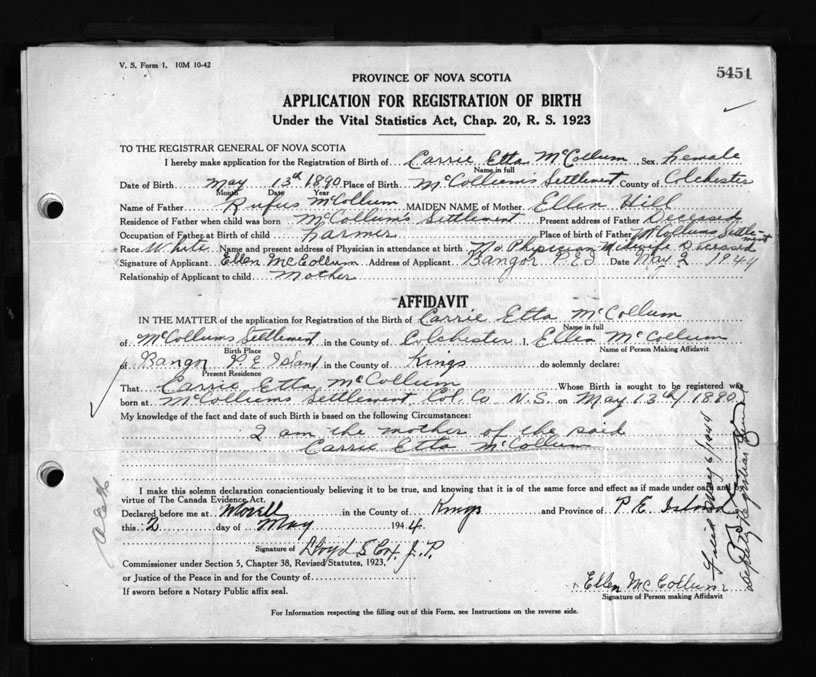 V. S. Form 1. 10M 10-42
5451
PROVINCE OF NOVA SCOTIA
APPLICATION FOR REGISTRATION OF BIRTH
Under the Vital Statistics Act, Chap. 20, R. S. 1923
TO THE REGISTRAR GENERAL OF NOVA SCOTIA
I hereby make application for the Registration of Birth of Carrie Etta McCollum Sex Female
Name in full
Date of Birth May 13th 1890 Place of Birth McCollum's Settlement County of Colchester
Month Date Year
Name of Father Rufus McCollum MAIDEN NAME of Mother Ellen Hill
Residence of Father when child was born McCollum's Settlement Present address of Father Deceased
Occupation of Father at Birth of child Farmer Place of Birth of Father McCollums Settlement
Race White Name and present address of Physician in attendance at birth No Physician Midwife Deceased
Signature of Applicant Ellen McCollum Address of Applicant Bangor P.E.I Date May 2 1944
Relationship of Applicant to child Mother
AFFIDAVIT
IN THE MATTER of the application for Registration of the Birth of Carrie Etta McCollum
Name in full
of McCollums Settlement in the County of Colchester I, Ellen McCollum
Birth Place Name of Person Making Affidavit
of Bangor P E Island in the County of Kings do solemnly declare:
Present Residence
That Carrie Etta McCollum Whose Birth is sought to be registered was
born at McCollums Settlement Col. Co. N.S. on May 13th 1890
My knowledge of the fact and date of such Birth is based on the following Circumstances:
I am the mother of the said
Carrie Etta McCollum
I make this solemn declaration conscientiously believing it to be true, and knowing that it is of the same force and effect as if made under oath and by
virtue of The Canada Evidence Act.
Declared before me at Morell in the County of Kings and Province of P E Island
this 2 day of May 1944.
Signature of Lloyd S Cox J. P.
Commissioner under Section 5, Chapter 38, Revised Statutes, 1923,
or Justice of the Peace in and for the County of
If sworn before a Notary Public affix seal.
Ellen McCollum
Signature of Person making Affidavit
For Information respecting the filling out of this Form, see Instructions on the reverse side.
Filed May 6/1944
Deputy Registrar General